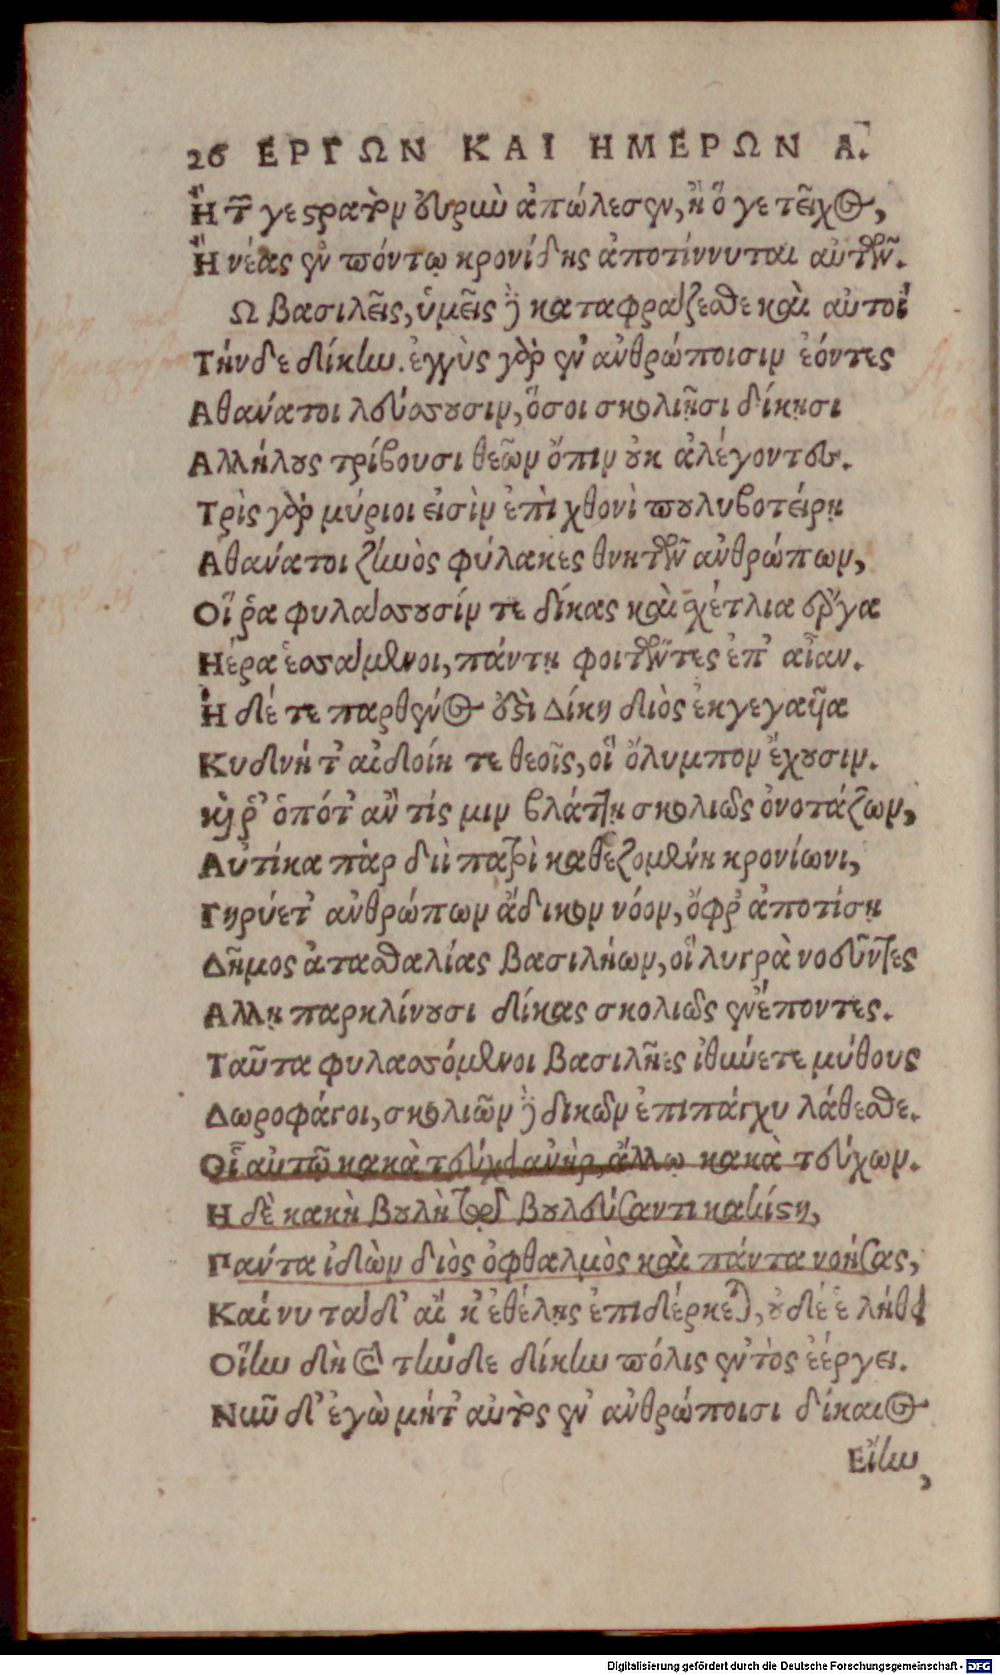 26 ΕΡΓΩΝ ΚΑΙ ΗΜΕΡΩΝ Α.
Ἢ τῶν γε στρατὸν εὐρὺν ἀπώλεσεν, ἢ ὅ γε τεῖχος,
Ἢ νέας ἐν πόντῳ κρονίδης ἀποτίννυται αὐτῶν.
Ω βασιλεῖς, ὑμεῖς δὲ καταφράζεσθε καὶ αὐτοί
Τήνδε δίκην. ἐγγὺς γὰρ ἐν ἀνθρώποισιν ἐόντες
Αθανάτοι λεύσσουσιν, ὅσοι σκολιῇσι δίκῃσι
Αλλήλους τρίβουσι θεῶν ὄπιν οὐκ ἀλέγοντες.
Τρὶς γὰρ μύριοι εἰσὶν ἐπὶ χθονὶ πουλυβοτείρῃ
Αθανάτοι ζηνὸς φύλακες θνητῶν ἀνθρώπων,
Οἵ ῥα φυλάσσουσίν τε δίκας καὶ σχέτλια ἔργα
Ηέρα ἑσσάμενοι, πάντῃ φοιτῶντες ἐπ' αἶαν.
Ἡ δέ τε παρθένος ἐστὶ Δίκη διὸς ἐκγεγαυῖα
Κυδνή τ' αἰδοίη τε θεοῖς, οἳ ὄλυμπον ἔχουσιν.
καί ῥ' ὁπότ' ἄν τίς μιν βλάπτῃ σκολιῶς ὀνοτάζων,
Αὐτίκα πὰρ διὶ πατρὶ καθεζομένη κρονίωνι,
Γηρύετ' ἀνθρώπων ἄδικον νόον, ὄφρ' ἀποτίσῃ
Δῆμος ἀτασθαλίας βασιλήων, οἳ λυγρὰ νοεῦντες
Αλλῃ παρκλίνουσι δίκας σκολιῶς ἐνέποντες.
Ταῦτα φυλασσόμενοι βασιλῆες ἰθύνετε μύθους
Δωροφάγοι, σκολιῶν δὲ δικῶν ἐπιπάγχυ λάθεσθε.
Οἷ αὐτῷ κακὰ τεύχει ἀνὴρ, ἄλλῳ κακὰ τεύχων.
Η δὲ κακὴ βουλὴ τῷ βουλεύσαντι κακίστη,
Πάντα ἰδὼν διὸς ὀφθαλμὸς καὶ πάντα νοήσας,
Καί νυ τάδ' αἴ κ' ἐθέλῃς ἐπιδέρκεται, οὐδέ ἑ λήθει
Οἵην δὴ καὶ τήνδε δίκην πόλις ἐντὸς ἐέργει.
Νῦν δ' ἐγὼ μήτ' αὐτὸς ἐν ἀνθρώποισι δίκαιος
Εἴην,
Digitalisierung gefördert durch die Deutsche Forschungsgemeinschaft - DFG